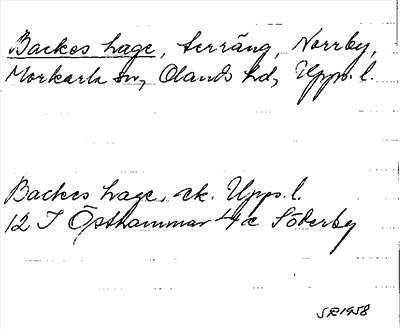 Backes hage, terräng, Norrby,
Morkarla sn, Olands hd, Upps. l.
Backes hage, ek. Upps. l.
12 I Östhammar 4 c Söderby
SE 1958